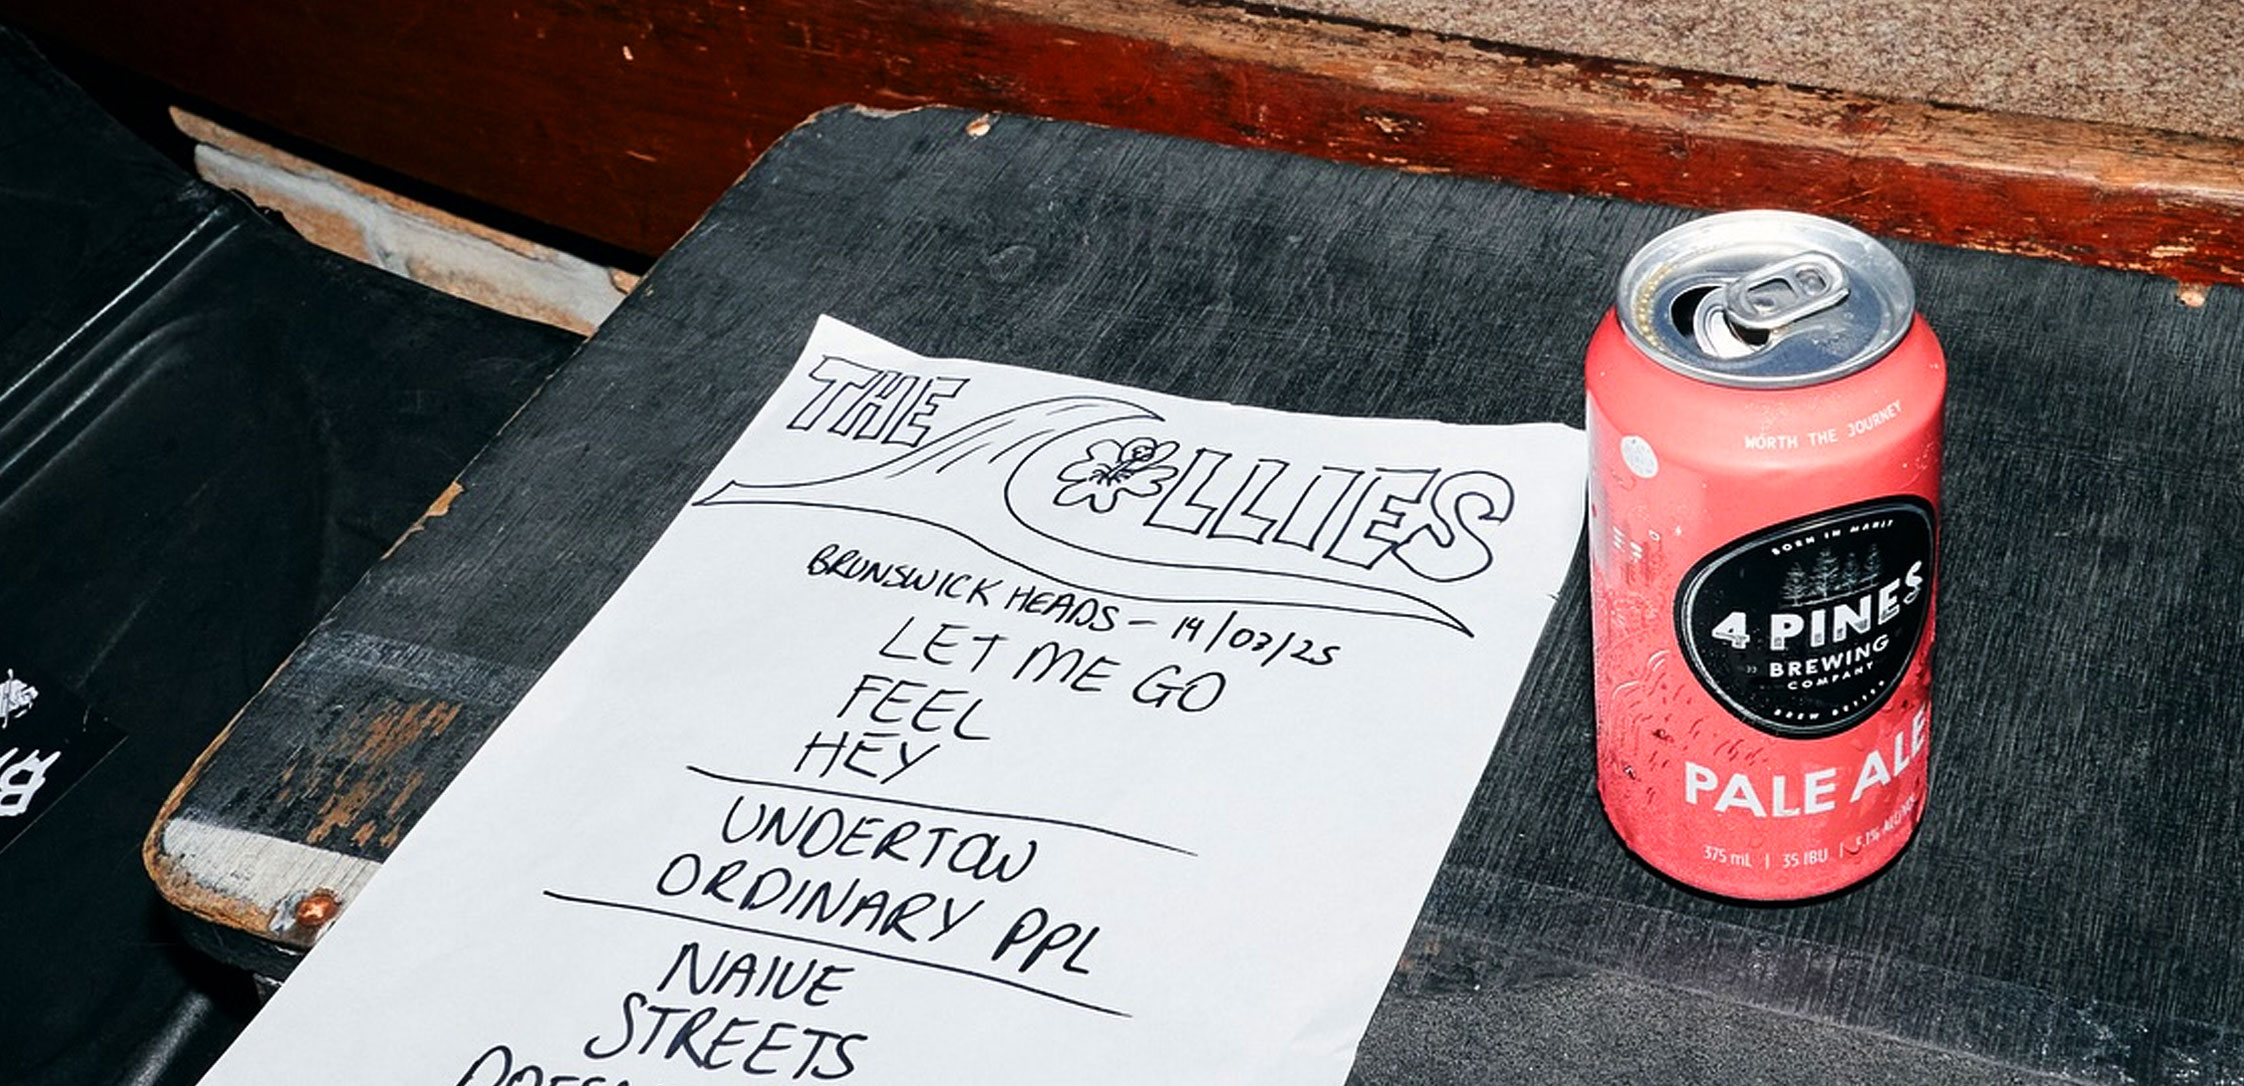 THE OLLIES
BRUNSWICK HEADS – 14/03/25
LET ME GO
FEEL
HEY
UNDERTOW
ORDINARY PPL
NAIVE
STREETS
WORTH THE JOURNEY
BORN IN MANLY
4 PINES
BREWING
COMPANY
BREW BETTER
PALE ALE
375 mL | 35 IBU | 5.1%